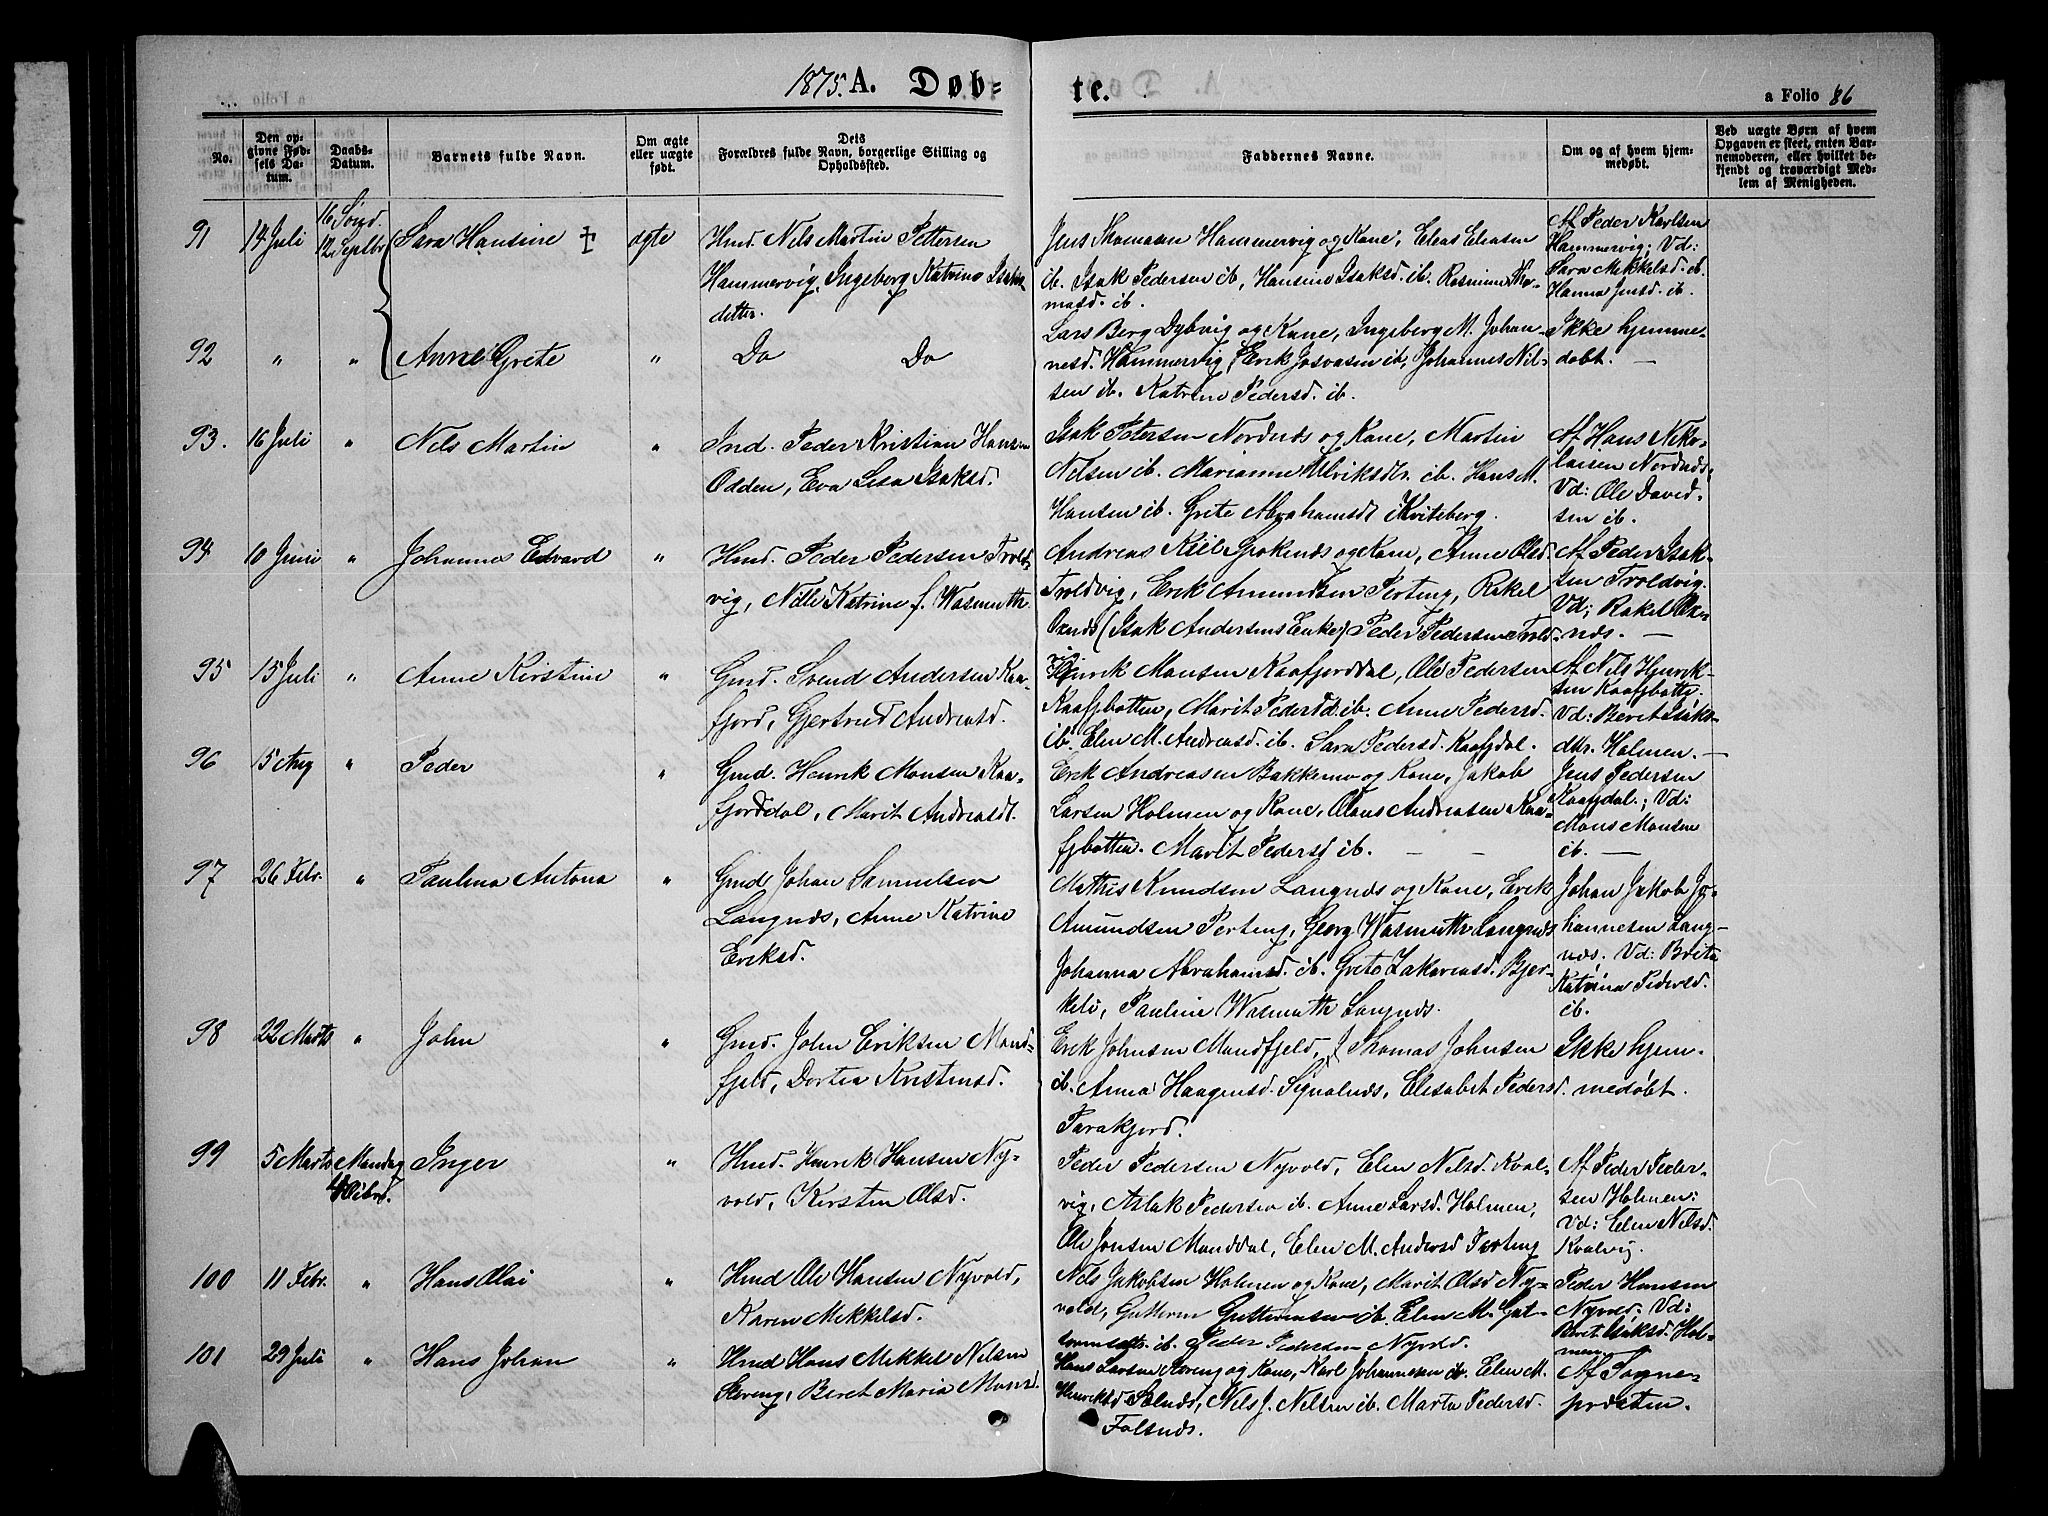 1875. A. Døb=
te.
a Folio 86
No.
Den op-
givne Fød-
sels Da-
tum.
Daabs-
Datum.
Barnets fulde Navn.
Om ægte
eller uægte
født.
Dets
Forældres fulde Navn, borgerlige Stilling og
Opholdssted.
Faddernes Navne.
Om og af hvem hjem-
medøbt.
Ved uægte Børn af hvem
Opgaven er skeet, enten Bar-
nemoderen, eller hvilket be-
kjendt og troværdigt Med-
lem af Menigheden.
91
14 Juli
16 Sønd.
12 Septbr
Sara Hansine †
ægte
Hmd. Nils Martin Pettersen
Hammervig, Ingeborg Katrine Isaks
datter.
Jens Thomassen Hammervig og Kone, Elias Eliasen
ib. Isak Pedersen ib, Hansine Isaksd. ib. Rasmine Tho-
masd. ib.
Af Peder Karlsen
Hammervig; Vd:
Sara Mikkelsd. ib.
Hanna Jensd. ib.
92
"
"
Anne Grete
"
Do Do
Lars Berg Dybvig og Kone, Ingeberg M. Johan-
nesd. Hammervig, Erik Josvasen ib, Johannes Nil-
sen ib. Katrine Pedersd. ib.
Ikke hjemme-
døbt. —
93.
16 Juli
"
Nils Martin
"
Ind. Peder Kristian Hansen
Odden, Eva Lisa Isaksd.
Isak Petersen Nordnds og Kone, Martin
Nilsen ib. Marianne Ulriksdtr. ib. Hans M.
Hansen ib. Grete Abrahamsdt Kviteberg.
Af Hans Niko-
laisen Nordnds;
Vd: Ole David-
sen ib.
94
10 Juni
"
Johannes Edvard
"
Hmd. Peder Pedersen Trold-
vig, Nille Katrine f. Wasmuth
Andreas Kiil Spoknds og Kone, Anne Olsd.
Troldvig, Erik Amundsen Porting, Rakel
Oxnds (Isak Andersens Enke) Peder Pedersen Trold-
vig
Af Peder Isak-
sen Troldvig.
Vd; Rakel Ox-
nds. —
95
15 Juli
"
Anne Kirstine
"
Gmd. Svend Andersen Kaa-
fjord, Gjertrud Andreasd.
Henrik Monsen Kaafjorddal, Ole Pedersen
Kaafjbotten, Marit Pedersd. ib. Anne Pedersd.
ib. Elen M. Andreasd. ib. Sara Pedersd. Kaafjdal.
Af Nils Henrik-
sen Kaafjbotte.
Vd: Beret Isaks-
dtr. Holmen. —
96
15 Aug
"
Peder
"
Gmd. Henrik Monsen Kaa-
fjorddal, Marit Andreasdt.
Erik Andreasen Bakkemo og Kone, Jakob
Larsen Holmen og Kone, Olaus Andreasen Kaa-
fjbotten. Marit Pedersd ib. — —
Jens Pedersen
Kaafjdal.; Vd:
Mons Monsen
ib. —
97
26 Febr.
"
Paulina Antona
"
Gmd Johan Samuelsen
Langnds, Anne Katrine
Eriksd.
Mathis Knudsen Langnds og Kone, Erik
Amundsen Porting, Georg Wasmuth Langnds
Johanna Abrahamsd. ib. Grete Zakariasd. Bjer-
keli, Pauline Wasmuth Langnds.
Johan Jakob Jo-
hannesen Lang-
nds. Vd: Brita
Katrina Pedersd.
ib.
98
22 Marts
"
John
"
Gmd. John Eriksen Mand-
fjeld, Dortea Kristensd.
Erik Johnsen Mandfjeld, Thomas Johnsen
ib. Anna Haagensd. Signalnds, Elisabet Pedersd.
Parakjord.
Ikke hjem-
medøbt.
99
5 Marts
Mandag
4 Octbr.
Inger
"
Hmd. Henrik Hansen Ny-
vold, Kirsten Olsd.
Peder Pedersen Nyvold, Elen Nilsd. Kval-
vig, Aslak Pedersen ib. Anne Larsd. Holmen,
Ole Jonsen Manddal, Elen M. Andersd Porting
Af Peder Peder-
sen Holmen:
Vd: Elen Nilsd.
Kvalvig.
100
11 Febr.
"
Hans Olai
"
Hmd Ole Hansen Nyvold,
Karen Mikkelsd.
Nils Jakobsen Holmen og Kone, Marit Olsd Ny-
vold, Guttorm Guttormsen ib. Elen M. Gut-
tormsdtr. ib. Peder Pedersen Nyvold.
Peder Hansen
Nyvold; Vd:
Beret Isaksd. Hol-
men.
101
29 Juli
"
Hans Johan
"
Hmd Hans Mikkel Nilsen
Storeng, Beret Maria Monsd.
Hans Larsen Storeng og Kone, Karl Johannesen ib. Elen M.
Henriksd Solnds, Nils J. Nilsen ib. Marta Pedersd.
Folsnds.
Af Sogne-
præsten.